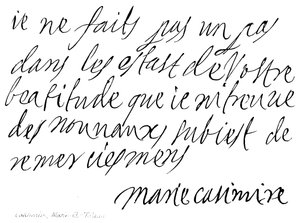 ie ne faits pas un pas
dans les estast de Vostre
beatitude que ie nitreuue
des nouuaux subiest de
remerciesmens
marie casimire